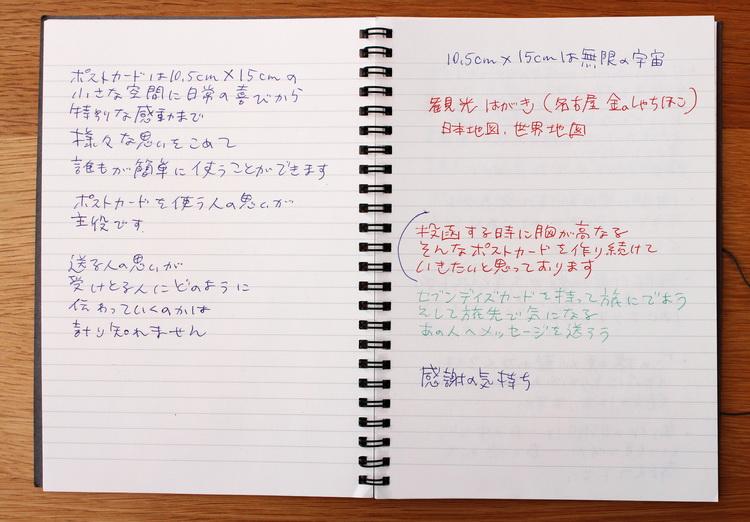 ポストカードは10.5cm×15cmの
小さな空間に日常の喜びから
特別な感動まで
様々な思いをこめて
誰もが簡単に使うことができます
ポストカードを使う人の思いが
主役です
送る人の思いが
受けとる人にどのように
伝わっていくのかは
計り知れません
10.5cm×15cmは無限の宇宙
観光はがき(名古屋 金のしゃちほこ)
日本地図、世界地図
投函する時に胸が高なる
そんなポストカードを作り続けて
いきたいと思っております
セブンデイズカードを持って旅にでよう
そして旅先で気になる
あの人へメッセージを送ろう
感謝の気持ち